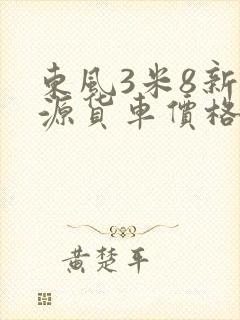 東風3米8新
源貨車價格
黃楚平